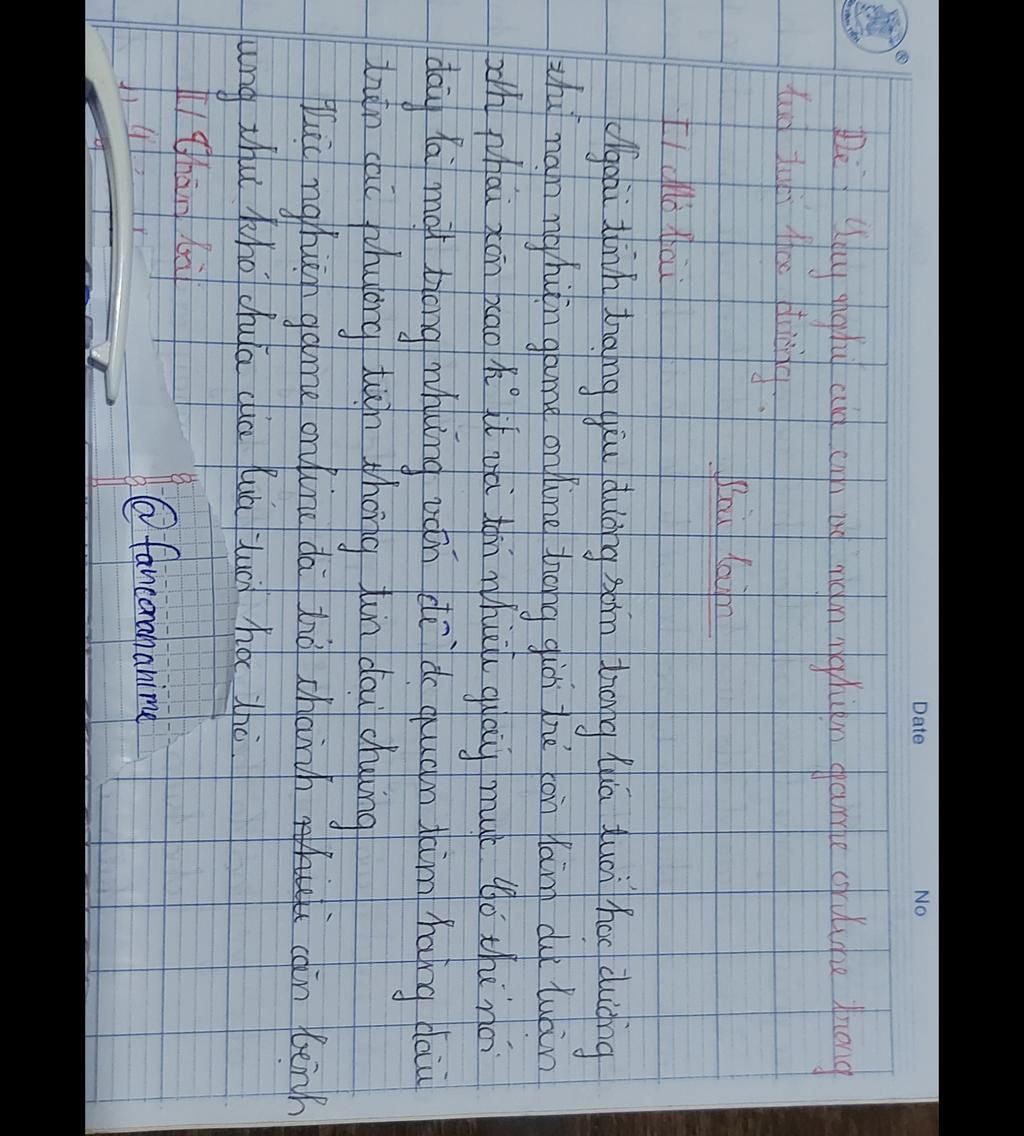 Date No
Đề: Suy nghĩ của em về nạn nghiện game online trong
lứa tuổi học đường.
Bài làm
I/ Mở bài
Ngoài tình trạng yêu đương sớm trong lứa tuổi học đường
thì nạn nghiện game online trong giới trẻ còn làm dư luận
xh phải xôn xao k° ít và tốn nhiều giấy mực. Có thể nói
đây là một trong những vấn đề đc quan tâm hàng đầu
trên các phương tiện thông tin đại chúng
Việc nghiện game online đã trở thành nhiều căn bệnh
ung thư khó chữa của lứa tuổi học trò.
II/ Thân bài
@fanconananime